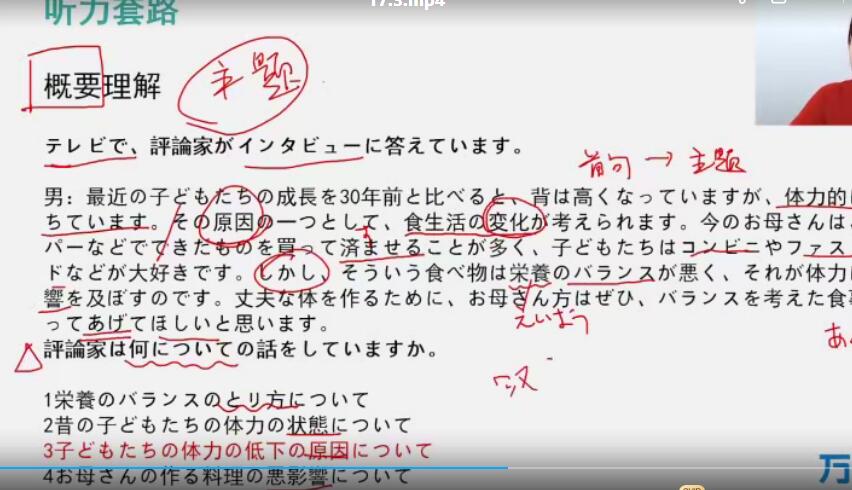 17.3.mp4
听力套路
概要理解 主题
テレビで、評論家がインタビューに答えています。
首句 → 主题
男：最近の子どもたちの成長を30年前と比べると、背は高くなっていますが、体力的に
ちています。その原因の一つとして、食生活の変化が考えられます。今のお母さんは
パーなどでできたものを買って済ませることが多く、子どもたちはコンビニやファス
ドなどが大好きです。しかし、そういう食べ物は栄養のバランスが悪く、それが体力
響を及ぼすのです。丈夫な体を作るために、お母さん方はぜひ、バランスを考えた食
ってあげてほしいと思います。
えいよう
評論家は何についての話をしていますか。
1栄養のバランスのとり方について
2昔の子どもたちの体力の状態について
3子どもたちの体力の低下の原因について
4お母さんの作る料理の悪影響について
万